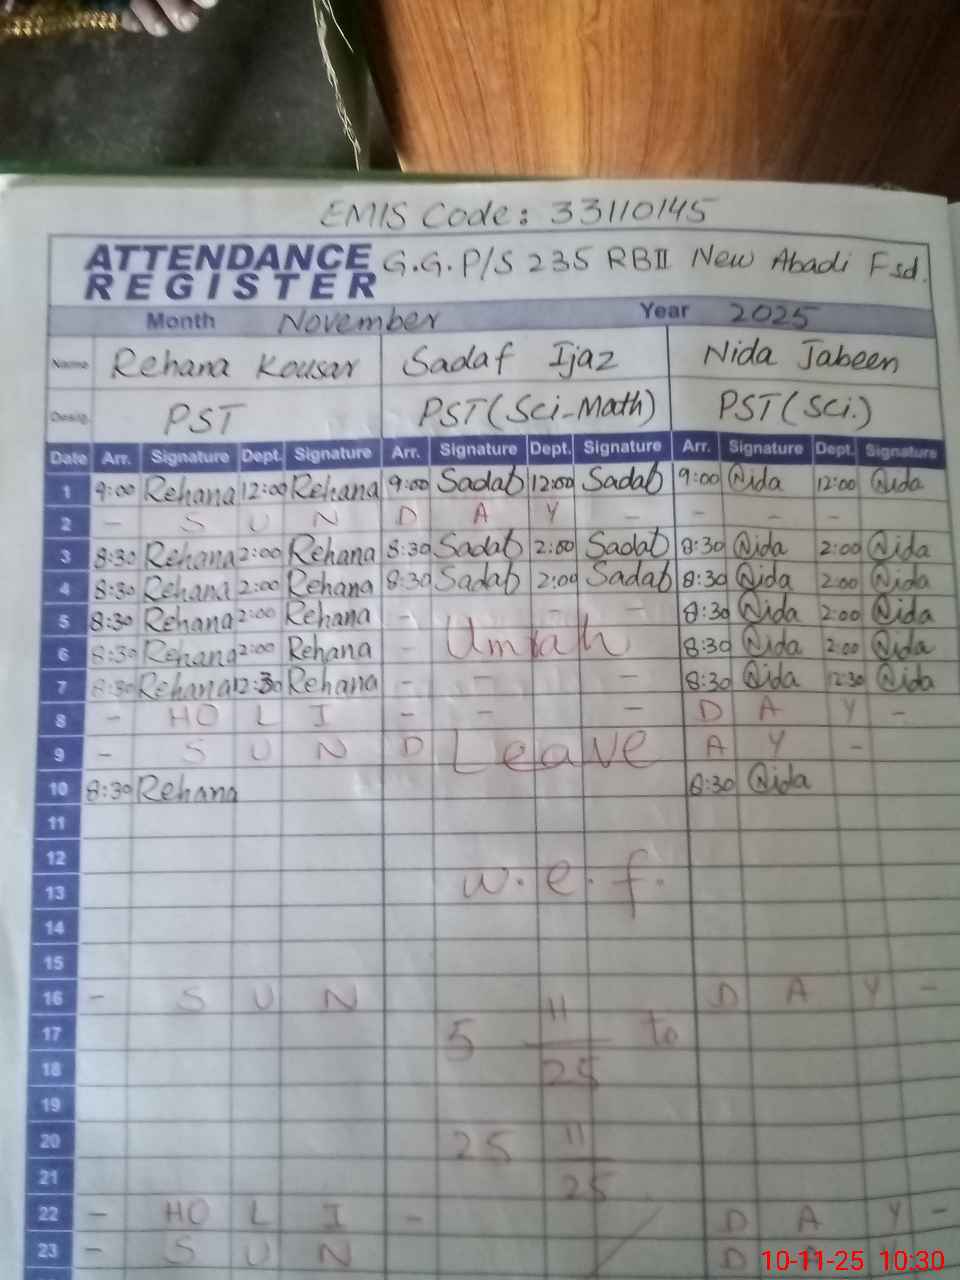 EMIS Code: 33110145
ATTENDANCE REGISTER G.G.P/S 235 RBII New Abadi Fsd.
Month November Year 2025
Name Rehana Kousar Sadaf Ijaz Nida Jabeen
Desig. PST PST(Sci-Math) PST(Sci.)
Date Arr. Signature Dept. Signature Arr. Signature Dept. Signature Arr. Signature Dept. Signature
1 9:00 Rehana 12:00 Rehana 9:00 Sadaf 12:00 Sadaf 9:00 Nida 12:00 Nida
2 - S U N D A Y - - - -
3 8:30 Rehana 2:00 Rehana 8:30 Sadaf 2:00 Sadaf 8:30 Nida 2:00 Nida
4 8:30 Rehana 2:00 Rehana 8:30 Sadaf 2:00 Sadaf 8:30 Nida 2:00 Nida
5 8:30 Rehana 2:00 Rehana - - - - 8:30 Nida 2:00 Nida
6 8:30 Rehana 2:00 Rehana - Umrah 8:30 Nida 2:00 Nida
7 8:30 Rehana 12:30 Rehana - - - 8:30 Nida 12:30 Nida
8 - HO L I - - - D A Y -
9 - S U N D Leave A Y -
10 8:30 Rehana 8:30 Nida
11
12
13 w.e.f.
14
15
16 - S U N D A Y -
17 5 11/25 to
18
19
20 25 11/25
21
22 - HO L I - D A Y -
23 - S U N D A Y
10-11-25 10:30